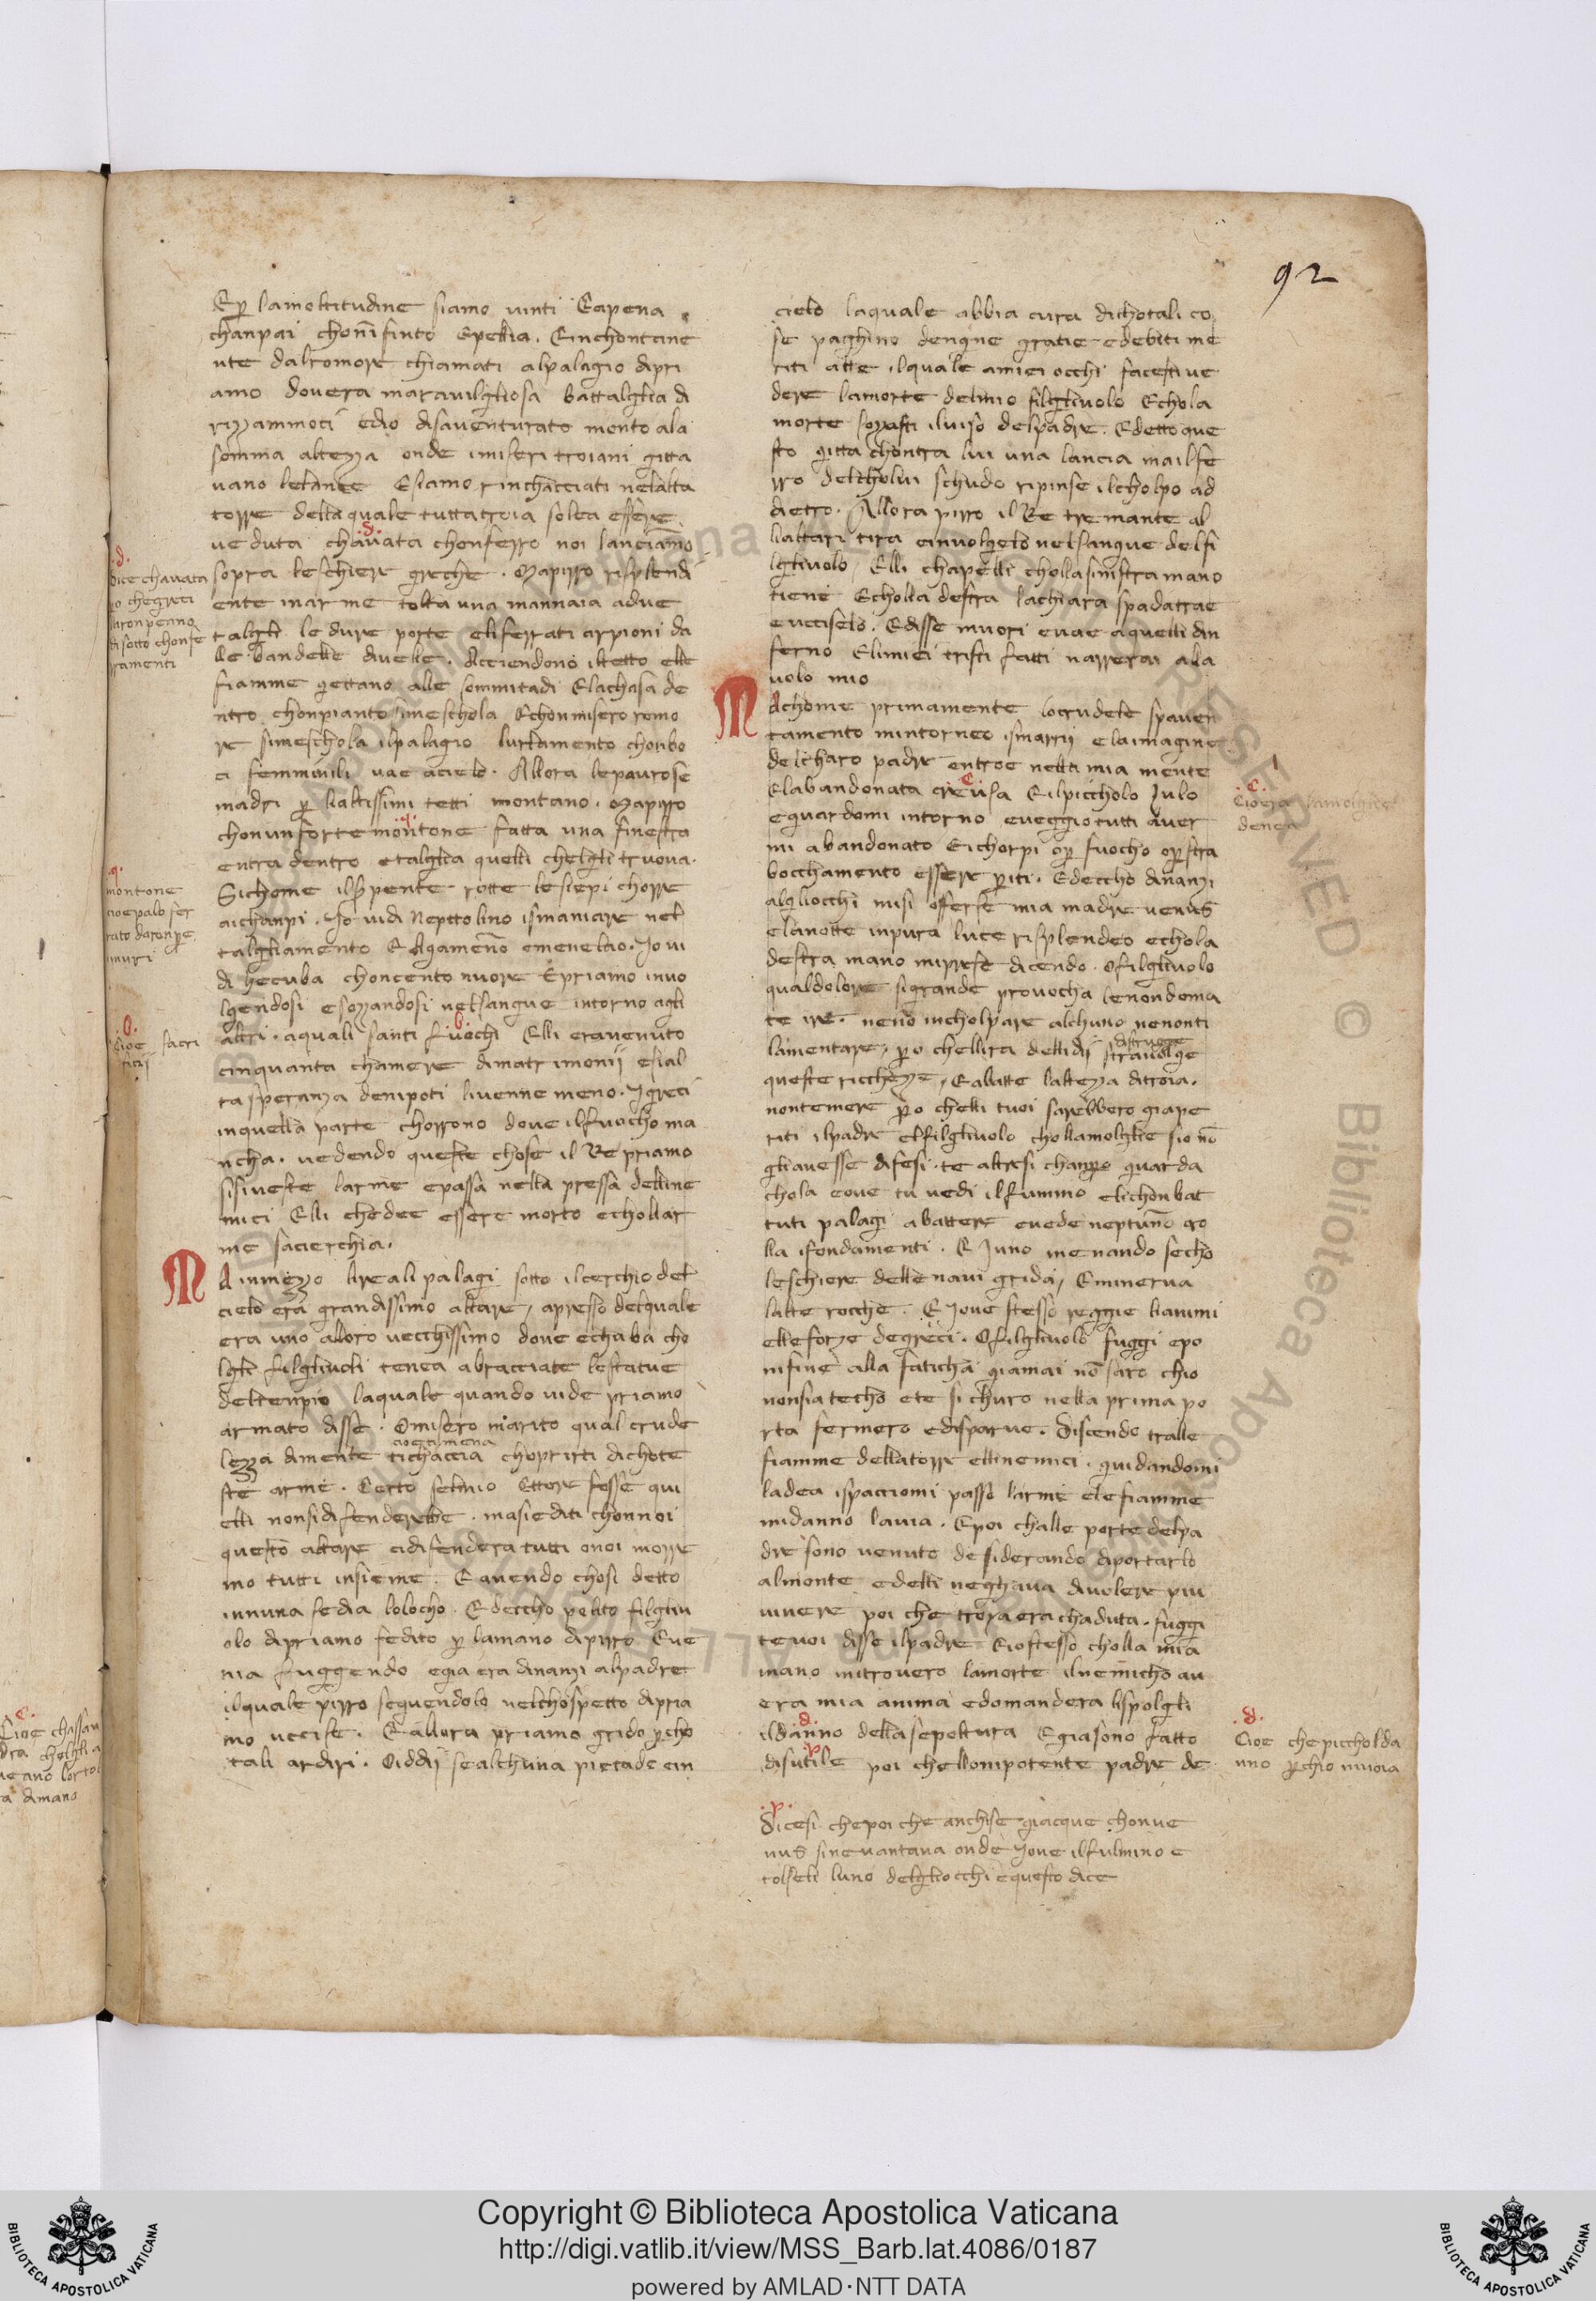 92
Eꝑ lamoltitudine siamo vinti Eapena
chanpai chonifinto Epellia. Einchontane
nte dalromore chiamati alpalagio dipri
amo dovera maravilgliosa battalglia di
rizzammoci edio disaventurato monto ala
somma altezza onde imiseri troiani gitta
vano lelancie Esiamo rinchacciati nelatta
torre della quale tutta troia solea essere
veduta chavata chonferro noi lanciamo
sopra leschiere greche. Mapirro risplendi
ente inarme tolta una mannaia adue
talgli le dure porte eliferrati arpioni da
lle bandelle divelle. Acciendono iltetto elle
fiamme gettano alle sommitadi Elachasa de
ntro chonpianto simeschola Echonmisero romo
re simeschola ilpalagio lurlamento chonbo
ci femminili vae acielo. Allora lepaurose
madri ꝑ lialtissimi tetti montano. Mapirro
chonunforte montone fatta una finestra
entra dentro etalglia quelli chelgli truova.
Sichome ilserpente rotte lesiepi chorre
aichanpi. Io vidi Nepttolino ismaniare nel
talgliamento E Agameno emenelao. Io vi
di hecuba choncento nuore Epriamo invo
lgendosi esozzandosi nelsangue intorno agli
altri. aquali santi fuochi Elli eravenuto
cinquanta chamere dimatrimonij esial
ta speranza denipoti livenne meno. Igreci
inquella parte chorrono dove ilfuocho ma
ncha. vedendo queste chose il Re priamo
sisiveste larme epassa nella pressa delline
mici Elli chedee essere morto echollar
me sacierchia.
MA inmezzo lireali palagi sotto ilcerchio del
cielo era grandissimo altare, apresso delquale
era uno alloro vecchissimo dove echuba cho
lgli filglivoli tenea abracciate lestatue
deltenpio laquale quando vide priamo
armato disse. Omisero marito qual crude
cioetimena
lezza dimente tichaccia choprirti dichote
ste arme. Certo selmio Ettore fosse qui
elli nonsidifenderebbe. masiedi chonnoi
questo altare cidifendera tutti onoi morre
mo tutti insieme. E avendo chosi detto
innuna sedia lolocho. Edeccho polito filgliu
olo dipriamo fedito ꝑ lamano dipirro Eve
nia fuggendo egia era dinanzi alpadre
ilquale pirro seguendolo nelchospetto dipria
mo uccise. E allora priamo grido ꝑcho
tali ardiri. Oiddij sealchuna pietade ein
.d.
Dice chavata
chegreci
di sotto chonfe
rramenti
.q.
montone
cioepalo fer
rato daronpe
imuri
.b.
Cioe sacri
ficij
cielo laquale abbia cura dichotali co
se paghino dengne gratie edebiti me
riti atte ilquale amiei occhi facestive
dere lamorte delmio filglivolo Echola
morte sozzasti ilviso delpadre. Edetto que
sto gitta chontra lui una lancia mailfe
rro delcholui schudo ripinse ilcholpo ad
dietro. Allora pirro il Re tremante al
lialtari tira einvolgelo nelsangue delfi
lglivolo, Elli chapelli chollasinistra mano
tiene Echolla destra lachiara spadatrae
euccisels. Edisse muori evae aquelli din
ferno Elimiei tristi fatti narrerai ala
volo mio
MAchome primamente locrudele spaven
tamento mintorneo ismarrij elaimagine
delcharo padre entroe nella mia mente
Elabandonata creusa Eilpiccholo Julo
eguardomi intorno eveggio tutti aver
mi abandonato Eichorpi oꝑ fuocho oꝑ stra
bocchamento essere ꝑiti. Edeccho dinanzi
algliocchi misi offerse mia madre venus
elanotte inpura luce risplendeo echola
destra mano mipprese dicendo. Ofilglivolo
qualdolore sigrande provocha lenondoma
te ire. neno incholpare alchuno nenonti
distrugge
lamentare, ꝑo chellira dellidij stravolge
queste ricchezze, Eabatte laltezza ditroia.
nontemere ꝑo chelli tuoi sarebbero giape
riti ilpadre elfilglivolo chollamolglie sio nō
gliavesse difesi. te altresi chanpo guarda
chola eove tu vedi ilfummo elichonbat
tuti palagi abattere evede neptuno cro
lla ifondamenti. E Juno menando secho
leschiere delle navi grida, Eminerva
latte rocche. E Jove stesso reggie lianimi
elleforze degreci. Ofilglivolo fuggi epo
nifine alla faticha giamai nō saro chio
nonsia techo ete si churo nella prima po
rta fermero edisparve. Discendo tralle
fiamme dellatorre ellinemici. guidandomi
ladea ispacciomi passo larmi elefiamme
midanno lavia. Epoi challe porte delpa
dre sono venuto desiderando diportarlo
almonte edelli neghava divolere piu
vivere poi che troya era chaduta. fuggi
tevoi disse ilpadre Eiostesso cholla mia
mano mitrovero lamorte ilnemicho av
era mia anima edomandera lispolgli
ildanno dellasepoltura Egiasono fatto
disutile poi chellonipotente padre de
.c.
Cioera lamolglie
denea
.d.
Cioe chepiccholda
nno ꝑchio muoia
.p.
Dicesi chepoi che anchise giacque chonve
nus sinevantava onde Jove ilfulmino e
tolseli luno delgliocchi equesto dice
Copyright © Biblioteca Apostolica Vaticana
http://digi.vatlib.it/view/MSS_Barb.lat.4086/0187
powered by AMLAD·NTT DATA